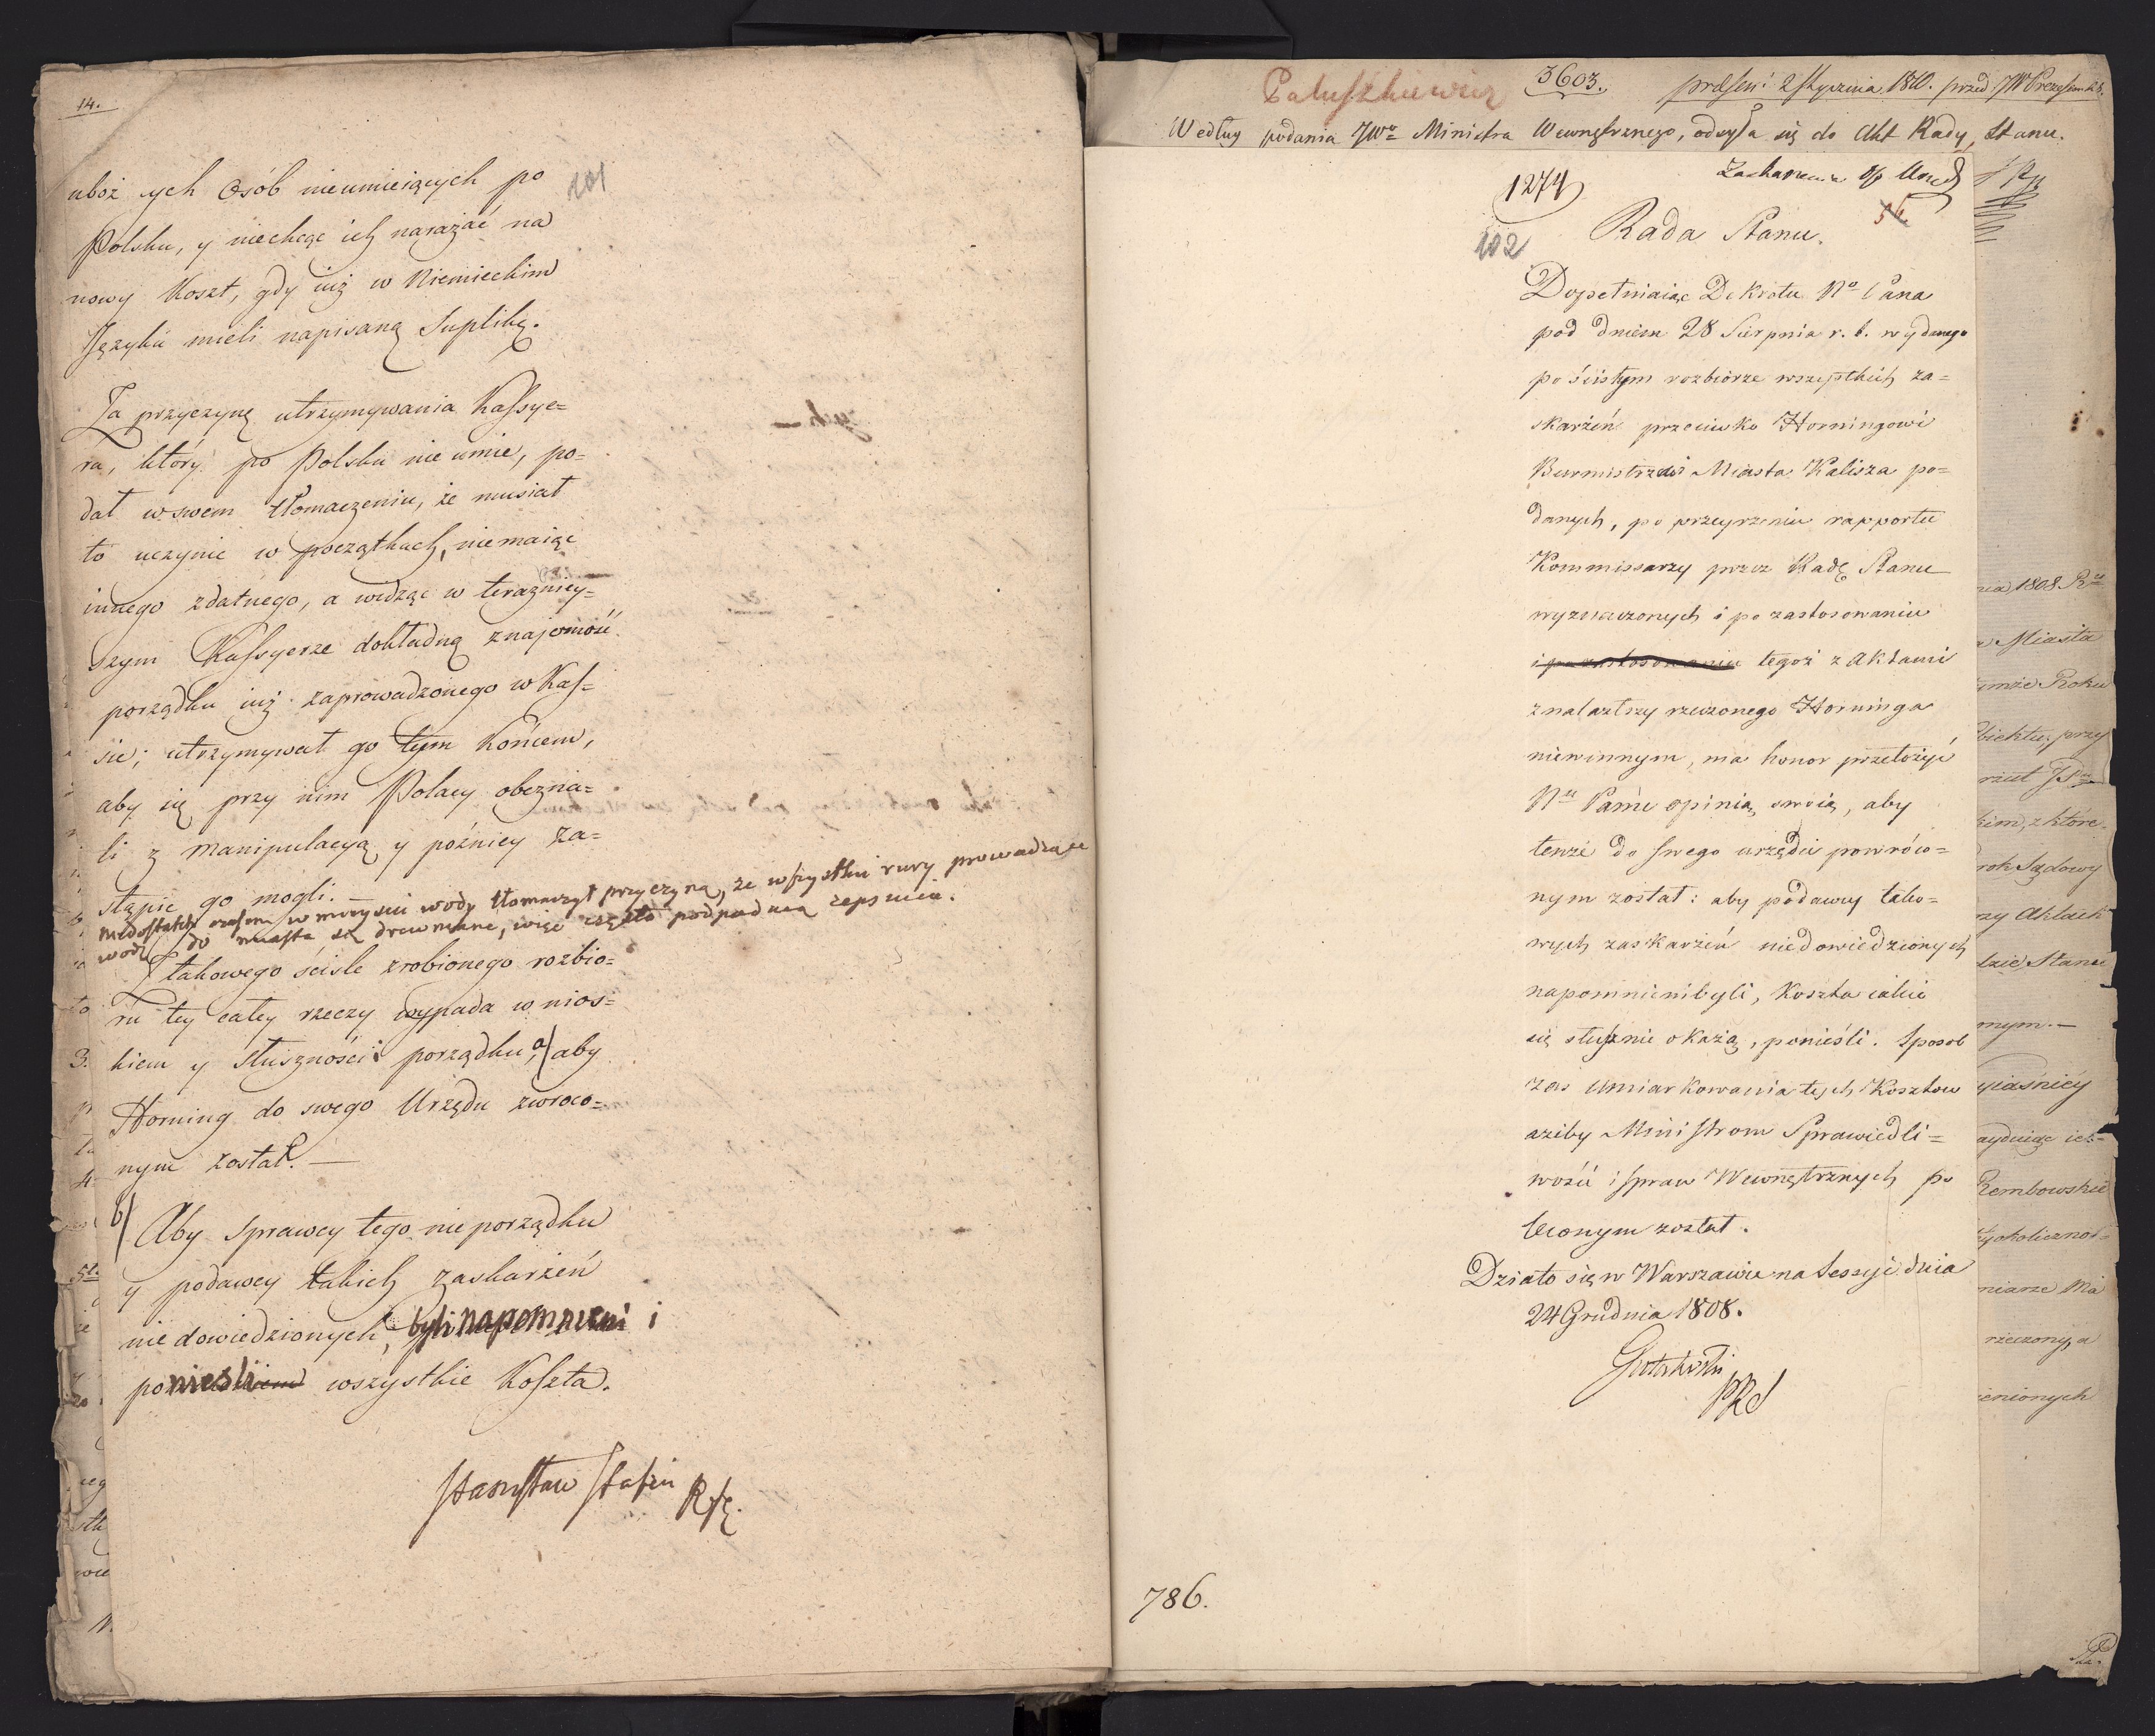 14.
101
uboż ych Osób nieumieiących po
Polsku, y niechcąc ich narażać na
nowy Koszt, gdy iuż w Niemieckim
Języku mieli napisaną Suplikę.
Za przyczynę utrzymywania Kassye=
ra, który po Polsku nie umie, po=
dał w swem tłomaczeniu, że musiał
to uczynic w początkach, niemaiąc
innego zdatnego, a widząc w terazniey=
szym Kassyerze dokładną znajomość
porządku iuż zaprowadzonego w Kas=
sie; utrzymywał go tym końcem,
aby się przy nim Polacy obezna=
li z manipulacyą y późniey za=
stąpic go mogli. —
Niedostatki czasem w mieyscu wody tłomaczył przyczyną, że wszystkie rury prowadzące
wodę do miasta są drewniane, więc często podpadaią zepsuciu.
Z takowego ściśle zrobionego rozbio=
ru tey całey rzeczy wypada wnios=
kiem y słuszności i porządku, a) aby
Horning do swego Urzędu zwroco=
nym został. —
b) Aby Sprawcy tego nieporządku
y podawcy takich zaskarżeń
nie dowiedzionych, byli napomnieni i
ponieśli wszystkie Koszta.
Stanisław Staszic
Paluszkiewicz
3603.
præsen: 2 Stycznia 1810. przed JW Prezesem
Według podania JWo Ministra Wewnętrznego, odsyła się do Akt Rady Stanu.
1274
102
Rada Stanu.
Dopełniaiąc Dekretu No Pana
pod dniem 28 Sierpnia r. b. wydanego
po ścisłym rozbiorze wszystkich za=
skarżeń przeciwko Horningowi
Burmistrzowi Miasta Kalisza po=
danych, po przeyrzeniu rapportu
Kommissarzy przez Radę Stanu
wyznaczonych i po zastosowaniu
i po zastosowaniu tegoż z Aktami
znalazłszy rzeczonego Horninga
niewinnym, ma honor przełożyć
Nu Panu opinią swoię, aby
tenże do swego urzędu powróco=
nym został: aby podawcy tako=
wych zaskarżeń niedowiedzionych
napomnieni byli, Koszta iakie
się słusznie okażą, ponieśli. Sposob
zaś umiarkowania tych Kosztow
ażeby Ministrom Sprawiedli=
wości i spraw Wewnętrznych po
leconym został.
Działo się w Warszawie na Sessyi dnia
24 Grudnia 1808.
Gutakowski
PRS
786.
nia 1808 R
a Miasta
imże Roku
biektu, przy
kim, z które
rok Sądowy
zy Aktach
dzie Stanu
mym. —
yiaśniéy
Rembowskie
okolicznoś=
rzeczony, a
ienionych